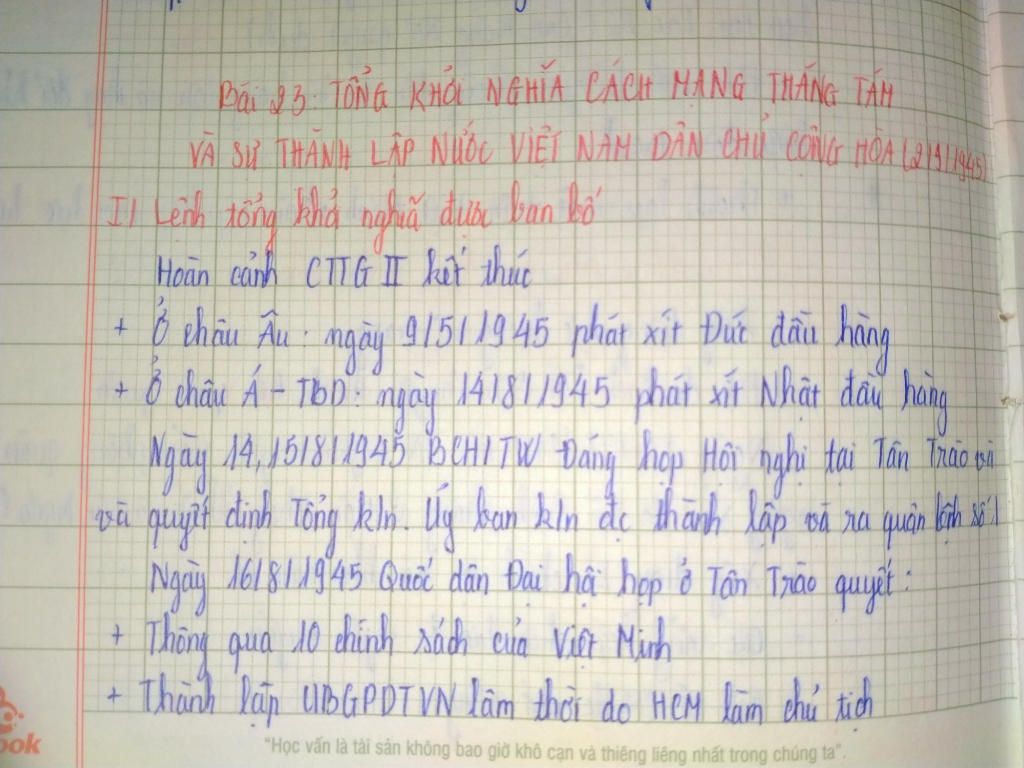 Bài 23: TỔNG KHỞI NGHĨA CÁCH MẠNG THÁNG TÁM
VÀ SỰ THÀNH LẬP NƯỚC VIỆT NAM DÂN CHỦ CỘNG HÒA (2/9/1945)
I/ Lệnh tổng khả nghĩã được ban bố
Hoàn cảnh CTTG II kết thúc
+ Ở châu Âu: ngày 9/5/1945 phát xít Đức đầu hàng
+ Ở châu Á - TBD: ngày 14/8/1945 phát xít Nhật đầu hàng
Ngày 14, 15/8/1945 BCHTW Đảng họp Hội nghị tại Tân Trào và
và quyết định Tổng kln. Ủy ban kln đc thành lập và ra quân lệnh số 1
Ngày 16/8/1945 Quốc dân Đại hội họp ở Tân Trào quyết:
+ Thông qua 10 chính sách của Việt Minh
+ Thành lập UBGPDTVN lâm thời do HCM làm chủ tịch
ook
"Học vấn là tài sản không bao giờ khô cạn và thiêng liêng nhất trong chúng ta".